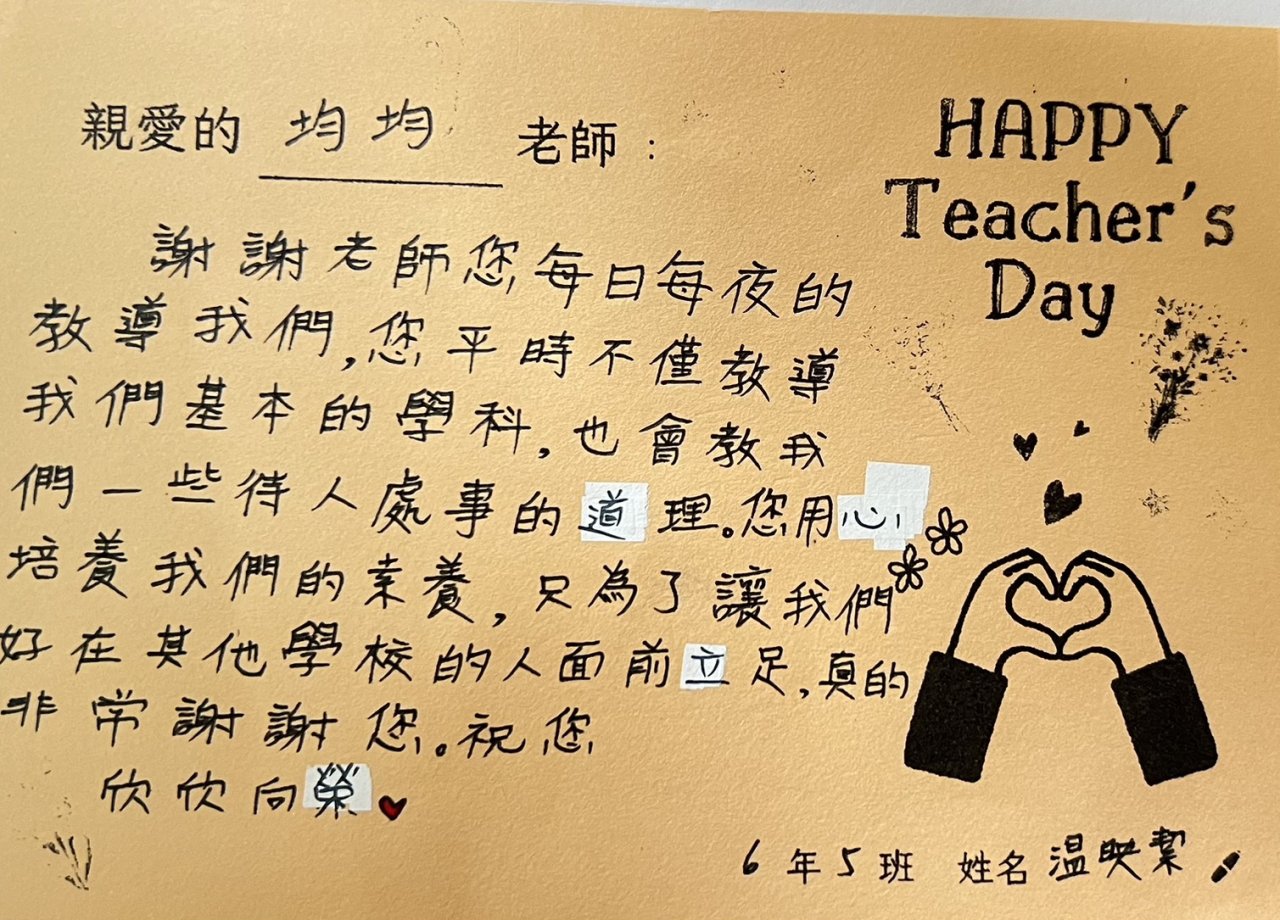 親愛的 均均 老師：
HAPPY
Teacher's
Day
謝謝老師您每日每夜的
教導我們,您平時不僅教導
我們基本的學科,也會教我
們一些待人處事的道理。您用心
培養我們的素養,只為了讓我們
好在其他學校的人面前立足,真的
非常謝謝您。祝您
欣欣向榮
6年5班 姓名 温映潔